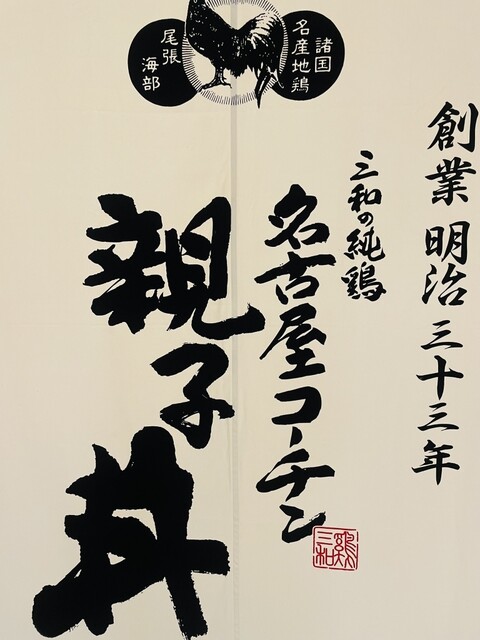 諸国
名産地鶏
尾張
海部
創業 明治三十三年
三和の純鶏
名古屋コーチン
親子丼
鶏三和